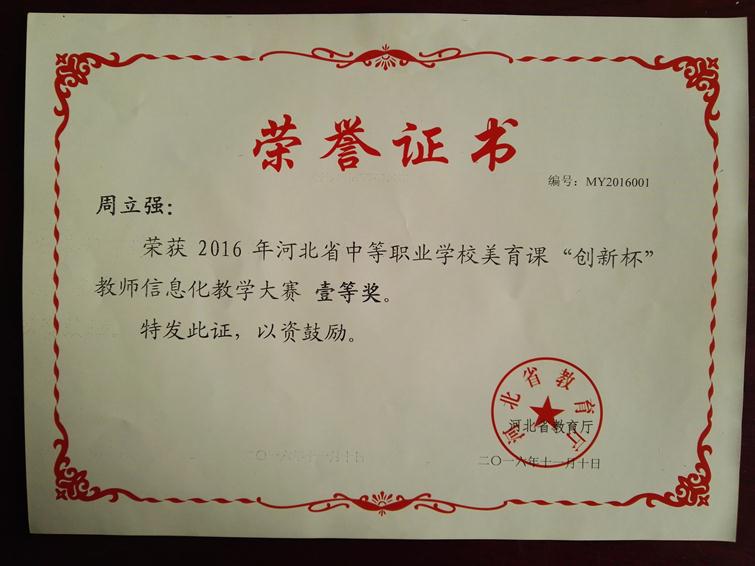 荣誉证书
编号：MY2016001
周立强：
荣获 2016 年河北省中等职业学校美育课“创新杯”
教师信息化教学大赛 壹等奖。
特发此证，以资鼓励。
河北省教育厅
河北省教育厅
二〇一六年十一月十日
二〇一六年十一月十日